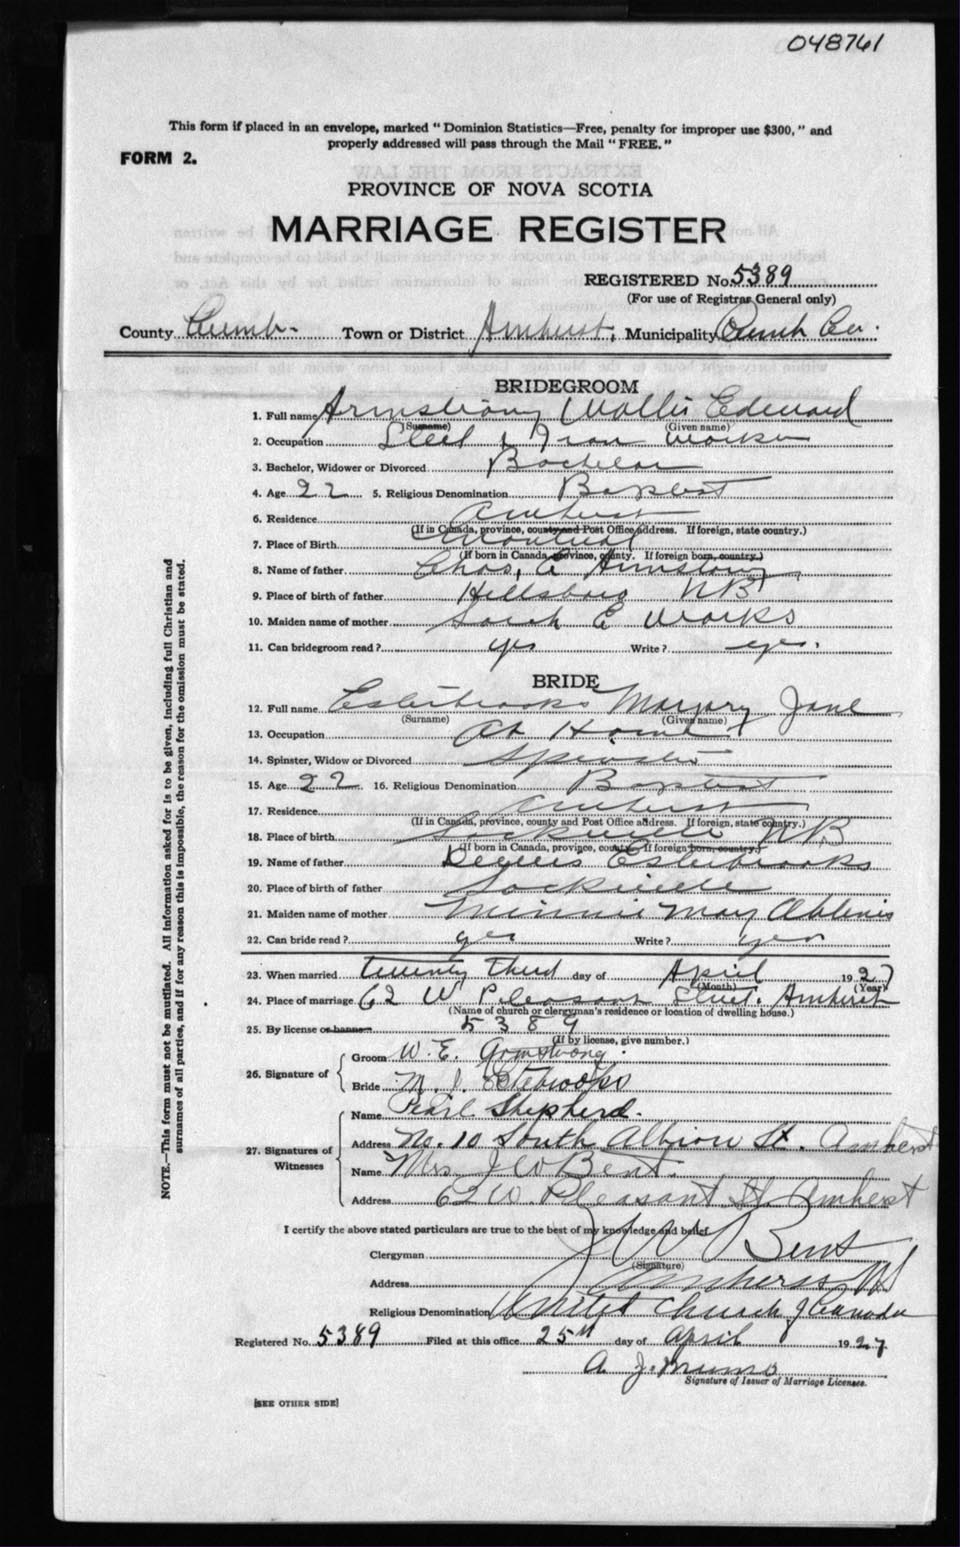 048761
This form if placed in an envelope, marked "Dominion Statistics—Free, penalty for improper use $300," and
properly addressed will pass through the Mail "FREE."
FORM 2.
PROVINCE OF NOVA SCOTIA
MARRIAGE REGISTER
REGISTERED No. 5389
(For use of Registrar General only)
County Cumb. Town or District Amherst, Municipality Cumb Co.
BRIDEGROOM
1. Full name Armstrong Wallis Edward
(Surname) (Given name)
2. Occupation Steel & Iron Worker
3. Bachelor, Widower or Divorced Bachelor
4. Age 22 5. Religious Denomination Baptist
6. Residence Amherst
(If in Canada, province, county and Post Office address. If foreign, state country.)
7. Place of Birth Montreal
(If born in Canada, province, county. If foreign born, country.)
8. Name of father Chas. A Armstrong
9. Place of birth of father Hillsboro NB
10. Maiden name of mother Sarah E Works
11. Can bridegroom read? yes Write? yes.
BRIDE
12. Full name Esterbrooks Marjory Jane
(Surname) (Given name)
13. Occupation At Home
14. Spinster, Widow or Divorced Spinster
15. Age 22 16. Religious Denomination Baptist
17. Residence Amherst
(If in Canada, province, county and Post Office address. If foreign, state country.)
18. Place of birth Sackville N.B
(If born in Canada, province, county. If foreign born, country.)
19. Name of father Esterbrooks
20. Place of birth of father Sackville
21. Maiden name of mother Minnie May
22. Can bride read? yes Write? yes
23. When married twenty third day of April 1927
(Month) (Year)
24. Place of marriage 62 W Pleasant Street. Amherst
(Name of church or clergyman's residence or location of dwelling house.)
25. By license or banns 5389
(If by license, give number.)
26. Signature of Groom W. E. Armstrong.
Bride M. J. Estebrooks
27. Signatures of Witnesses Name Pearl Shepherd.
Address No. 10 South Albion St. Amherst
Name Mrs J W Bent.
Address 62 W. Pleasant St. Amherst
I certify the above stated particulars are true to the best of my knowledge and belief.
Clergyman J W Bent
(Signature)
Address Amherst NS
Religious Denomination United Church of Canada
Registered No. 5389 Filed at this office 25th day of April 1927
A. J. Munro
Signature of Issuer of Marriage Licenses.
[SEE OTHER SIDE]
NOTE.—This form must not be mutilated. All information asked for is to be given, including full Christian and
surnames of all parties, and if for any reason this is impossible, the reason for the omission must be stated.